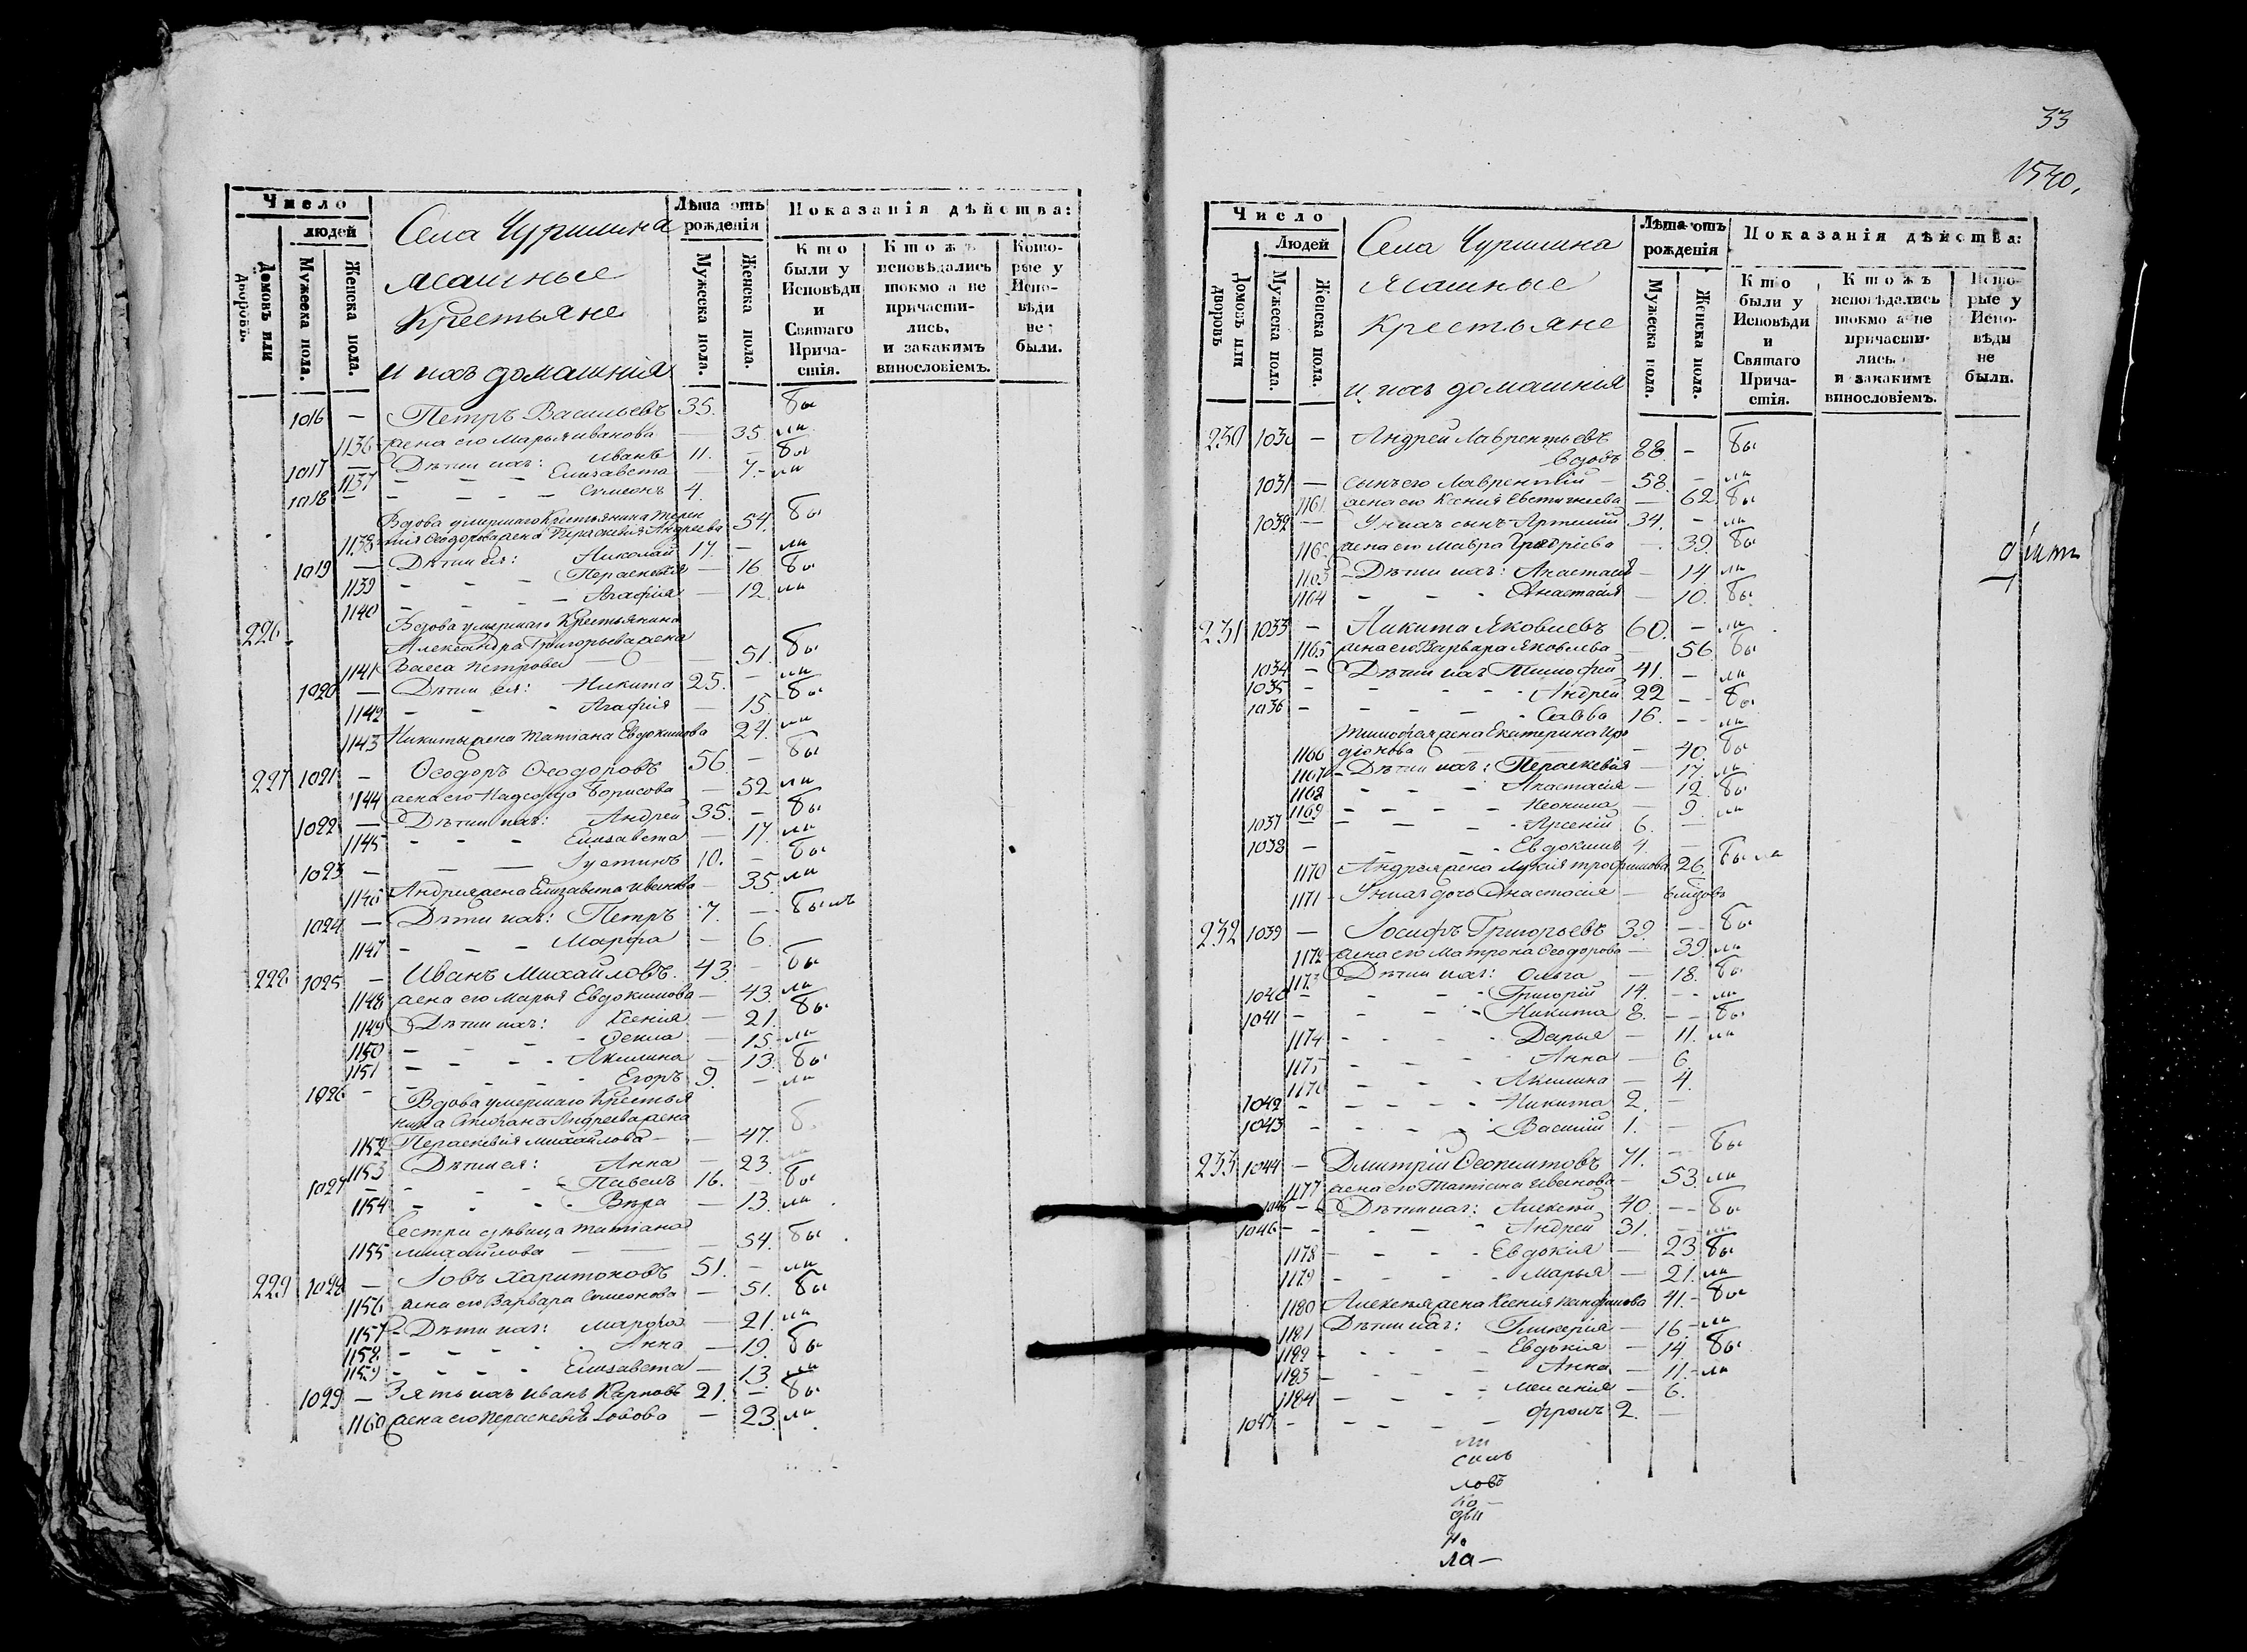 Число
людей
Домовъ или дворовъ.
Мужеска пола.
Женска пола.
Села Чурилина
ясашные
Крестьяне
и ихъ домашнія
Лѣта отъ рожденія
Мужеска пола.
Женска пола.
Показанія дѣйства:
Кто были у Исповѣди и Святаго Прича-стія.
Ктожъ исповѣдались токмо а не причасти-лись, и закакимъ винословіемъ.
Кото-рые у Испо-вѣди не были.
1016 — Петръ Васильевъ 35. бы
1136 жена его Марья Иванова — 35 ли
1017 — Дѣти ихъ: Иванъ 11. — бы
1137 Елисавета — 7. ли
1018 — Симеонъ 4.
Вдова умершаго Крестьянина Терен
1138 тія Ѳеодорова жена Параскевія Андреева 54. бы
1019 — Дѣти ея: Николай 17. — ли
1139 Параскевія — 16 бы
1140 Агафія — 12. ли
226 Вдова умершаго Крестьянина
Александра Григорьева жена
1141 Васса Петрова — 51. бы
1020 — Дѣти ея: Никита 25. — ли
1142 Агафія — 15. бы
1143 Никиты жена Татіана Евдокимова 24. ли
227 1021 — Ѳеодоръ Ѳеодоровъ 56. — бы
1144 жена его Надежда Борисова — 52 ли
1022 — Дѣти ихъ: Андрей 35. — бы
1145 Елисавета — 17. ли
1023 — Іустинъ 10. — бы
1146 Андрея жена Елизавета Иванова — 35. ли
1024 — Дѣти ихъ: Петръ 7. — былъ
1147 Марфа — 6.
228 1025 — Иванъ Михайловъ. 43. — бы
1148 жена его Марья Евдокимова — 43. ли
1149 Дѣти ихъ: Ксенія — 21. бы
1150 Ѳекла — 15. ли
1151 Акилина — 13. бы
1026 — Егоръ 9. — ли
Вдова умершаго Крестья
нина Стефана Андреева жена
1152 Параскевія Михайлова — 47. б
1153 Дѣти ея: Анна — 23. ли
1027 — Павелъ 16. — бы
1154 Вѣра — 13. ли
Сестра дѣвица Татіана
1155 Михайлова — 54. бы
229 1028 — Іовъ Харитоновъ 51. — ли
1156 жена его Варвара Симеонова — 51. бы
1157 Дѣти ихъ: Марфа — 21. ли
1158 Анна — 19. бы
1159 Елисавета — 13 ли
1029 — Зять ихъ Иванъ Карповъ 21. — бы
1160 жена его Параскевія Іовова — 23 ли
33
1540,
Число
Людей
Домовъ или дворовъ
Мужеска пола.
Женска пола.
Села Чурилина
Ясашные
Крестьяне
и ихъ домашнія
Лѣта отъ рожденія
Мужеска пола.
Женска пола.
Показанія дѣйства:
Кто были у Исповѣди и Святаго Прича-стія.
Ктожъ исповѣдались токмо а не причасти-лись. и закакимъ винословіемъ.
Кото-рые у Испо-вѣди не были.
230 1030 — Андрей Лаврентьевъ
вдовъ 88. — бы
1031 — сынъ его Лаврентій — 58. — ли
1161 жена его Ксенія Евстигнеева — 62. бы
1032 — У нихъ сынъ Артемій 34. — ли
1162 жена его Мавра Григоріева — 39. бы
1163 — Дѣти ихъ: Анастасія — 14 ли
1164 Анастасія — 10. бы
231 1033 — Никита Яковлевъ 60. — ли
1165 жена его Варвара Яковлева — 56 бы
1034 — Дѣти ихъ Тимофей 41. — ли
1035 — Андрей 22 — бы
1036 — Савва 16. — ли
Тимофея жена Екатерина Иро
1166 діонова — 40. бы
1167 — Дѣти ихъ: Параскевія — 17. ли
1168 Анастасія — 12. бы
1169 Неонила — 9. ли
1037 — Арсеній 6. —
1038 — Евдокимъ 4. —
1170 Андрея жена Лукія Трофимова 26. была
1171 У нихъ дочь Анастасія —
232 1039 — Іосифъ Григорьевъ 39. — бы
1172 жена его Матрона Ѳеодорова — 39. ли
1173 Дѣти ихъ: Ольга — 18. бы
1040 — Григорій 14. — ли
1041 — Никита 8. — бы
1174 Дарья — 11. ли
1175 Анна — 6.
1176 Акилина — 4.
1042 — Никита 2. —
1043 — Василій 1. —
233 1044 — Дмитрій Ѳеопемптовъ 71. — бы
1177 жена его Татіана Иванова — 53. ли
1045 — Дѣти ихъ: Алексѣй 40. — бы
1046 — Андрей 31. — ли
1178 Евдокія — 23 бы
1179 Марья — 21. ли
1180 Алексѣя жена Ксенія Панфилова 41. бы
1181 Дѣти ихъ: Гликерія — 16. ли
1182 Евдокія — 14. бы
1183 Анна — 11. ли
1184 Меланія — 6.
1047 — Фролъ 2. —
ли
силъ
ловъ
ко —
дви
на
ла —